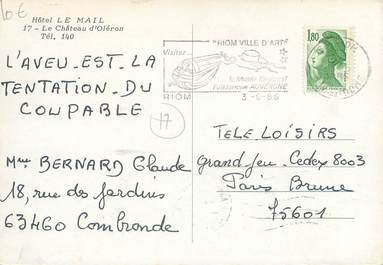 10€
Hôtel LE MAIL
17 - Le Château d'Oléron
Tél. 140
L'AVEU-EST-LA
TENTATION-DU
COUPABLE
17
Mme BERNARD Claude
18, rue des Jardins
63460 Combronde
Visitez
"RIOM VILLE D'ART"
le Musée Régional
Folklorique AUVERGNE
RIOM
3-9-86
1,80
TELE LOISIRS
Grand Jeu - Cedex 8003
Paris Brune
75601